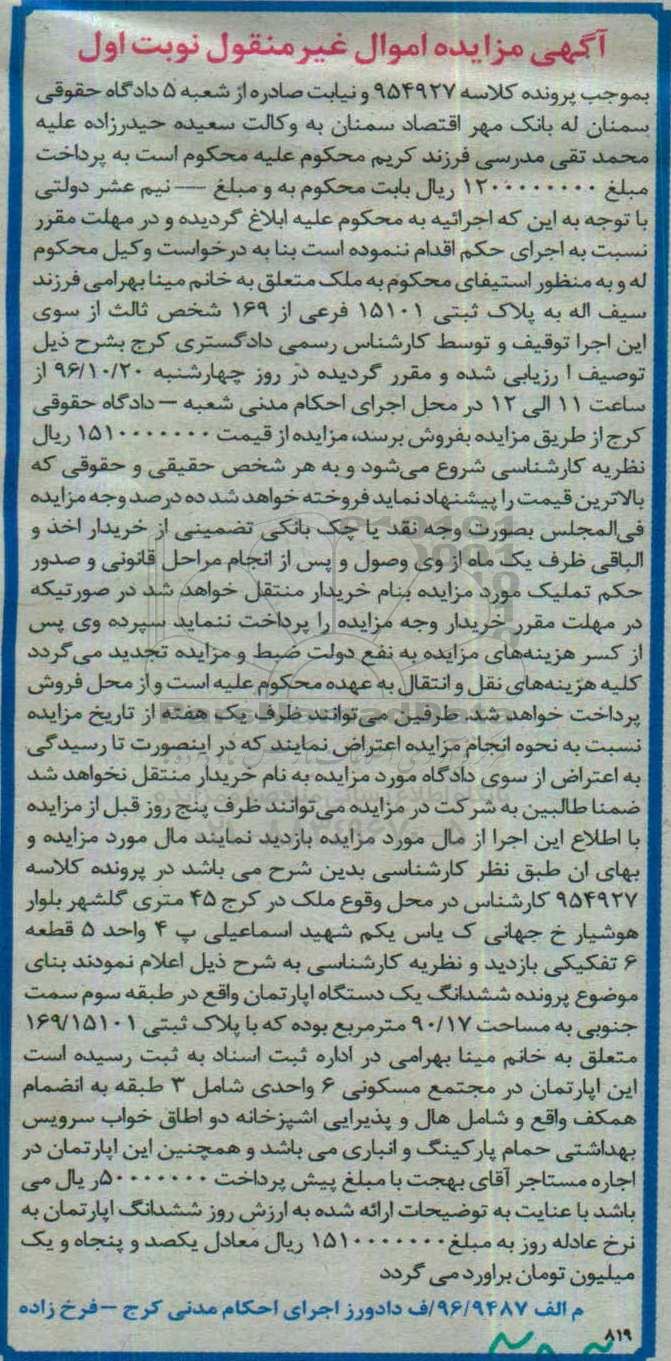 آگهی مزایده اموال غیر منقول نوبت اول
بموجب پرونده کلاسه ۹۵۴۹۲۷ و نیابت صادره از شعبه ۵ دادگاه حقوقی
سمنان له بانک مهر اقتصاد سمنان به وکالت سعیده حیدرزاده علیه
محمد تقی مدرسی فرزند کریم محکوم علیه محکوم است به پرداخت
مبلغ ۱۲۰۰۰۰۰۰۰۰ ریال بابت محکوم به و مبلغ --- نیم عشر دولتی
با توجه به این که اجرائیه به محکوم علیه ابلاغ گردیده و در مهلت مقرر
نسبت به اجرای حکم اقدام ننموده است بنا به درخواست وکیل محکوم
له و به منظور استیفای محکوم به ملک متعلق به خانم مینا بهرامی فرزند
سیف اله به پلاک ثبتی ۱۵۱۰۱ فرعی از ۱۶۹ شخص ثالث از سوی
این اجرا توقیف و توسط کارشناس رسمی دادگستری کرج بشرح ذیل
توصیف ا رزیابی شده و مقرر گردیده در روز چهارشنبه ۹۶/۱۰/۲۰ از
ساعت ۱۱ الی ۱۲ در محل اجرای احکام مدنی شعبه – دادگاه حقوقی
کرج از طریق مزایده بفروش برسد، مزایده از قیمت ۱۵۱۰۰۰۰۰۰۰ ریال
نظریه کارشناسی شروع می‌شود و به هر شخص حقیقی و حقوقی که
بالاترین قیمت را پیشنهاد نماید فروخته خواهد شد ده درصد وجه مزایده
فی‌المجلس بصورت وجه نقد یا چک بانکی تضمینی از خریدار اخذ و
الباقی ظرف یک ماه از وی وصول و پس از انجام مراحل قانونی و صدور
حکم تملیک مورد مزایده بنام خریدار منتقل خواهد شد در صورتیکه
در مهلت مقرر خریدار وجه مزایده را پرداخت ننماید سپرده وی پس
از کسر هزینه‌های مزایده به نفع دولت ضبط و مزایده تجدید می‌گردد
کلیه هزینه‌های نقل و انتقال به عهده محکوم علیه است و از محل فروش
پرداخت خواهد شد. طرفین می‌توانند ظرف یک هفته از تاریخ مزایده
نسبت به نحوه انجام مزایده اعتراض نمایند که در اینصورت تا رسیدگی
به اعتراض از سوی دادگاه مورد مزایده به نام خریدار منتقل نخواهد شد
ضمنا طالبین به شرکت در مزایده می‌توانند ظرف پنج روز قبل از مزایده
با اطلاع این اجرا از مال مورد مزایده بازدید نمایند مال مورد مزایده و
بهای ان طبق نظر کارشناسی بدین شرح می باشد در پرونده کلاسه
۹۵۴۹۲۷ کارشناس در محل وقوع ملک در کرج ۴۵ متری گلشهر بلوار
هوشیار خ جهانی ک یاس یکم شهید اسماعیلی پ ۴ واحد ۵ قطعه
۶ تفکیکی بازدید و نظریه کارشناسی به شرح ذیل اعلام نمودند بنای
موضوع پرونده ششدانگ یک دستگاه اپارتمان واقع در طبقه سوم سمت
جنوبی به مساحت ۹۰/۱۷ مترمربع بوده که با پلاک ثبتی ۱۶۹/۱۵۱۰۱
متعلق به خانم مینا بهرامی در اداره ثبت اسناد به ثبت رسیده است
این اپارتمان در مجتمع مسکونی ۶ واحدی شامل ۳ طبقه به انضمام
همکف واقع و شامل هال و پذیرایی اشپزخانه دو اطاق خواب سرویس
بهداشتی حمام پارکینگ و انباری می باشد و همچنین این اپارتمان در
اجاره مستاجر آقای بهجت با مبلغ پیش پرداخت ۵۰۰۰۰۰۰۰۰ ریال می
باشد با عنایت به توضیحات ارائه شده به ارزش روز ششدانگ اپارتمان به
نرخ عادله روز به مبلغ ۱۵۱۰۰۰۰۰۰۰ ریال معادل یکصد و پنجاه و یک
میلیون تومان براورد می گردد
م الف ۹۶/۹۴۸۷/ف دادورز اجرای احکام مدنی کرج – فرخ زاده
۸۱۹